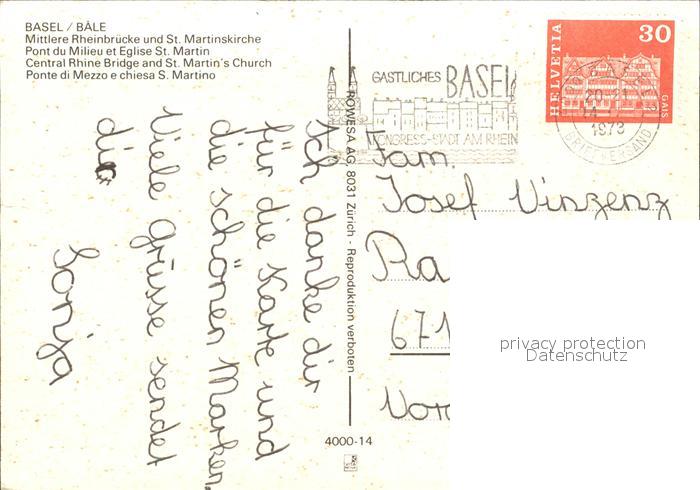 BASEL / BÂLE
Mittlere Rheinbrücke und St. Martinskirche
Pont du Milieu et Eglise St. Martin
Central Rhine Bridge and St. Martin's Church
Ponte di Mezzo e chiesa S. Martino
Ich danke dir
für die Karte und
die schönen Marken.
Viele Grüsse sendet
die
Sonja
ROWESA AG, 8031 Zürich - Reproduktion verboten
4000-14
GASTLICHES BASEL
KONGRESS-STADT AM RHEIN
HELVETIA
30
GAIS
BASEL
1973
BRIEFVERSAND
Fam.
Josef Vinzenz
Ra
671
Vor
privacy protection
Datenschutz